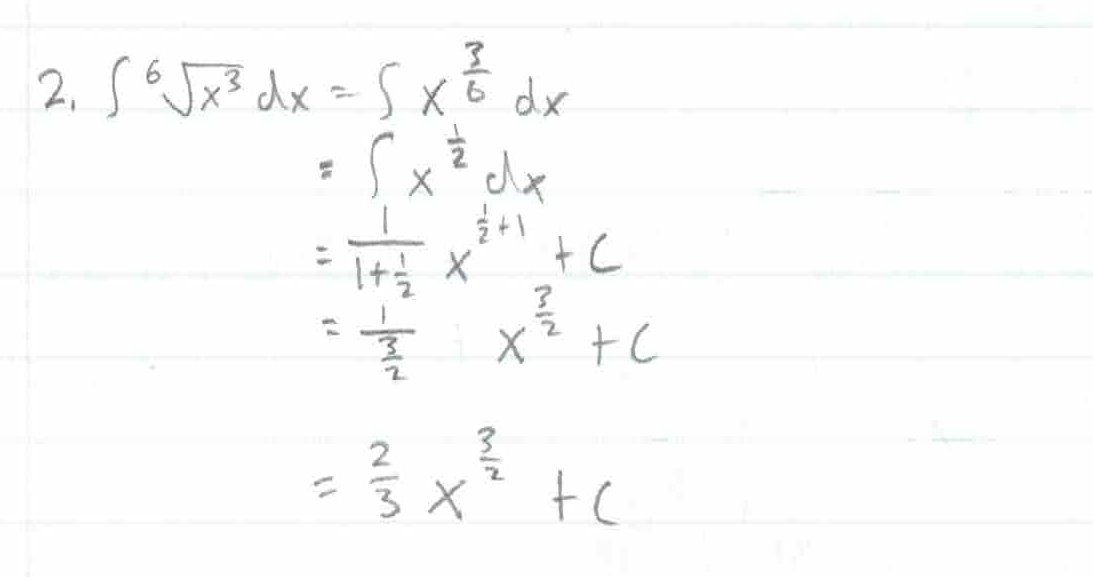 2. ∫ ⁶√x³ dx = ∫ x^(3/6) dx
= ∫ x^(1/2) dx
= 1/(1+1/2) x^(1/2+1) + C
= 1/(3/2) x^(3/2) + C
= 2/3 x^(3/2) + C